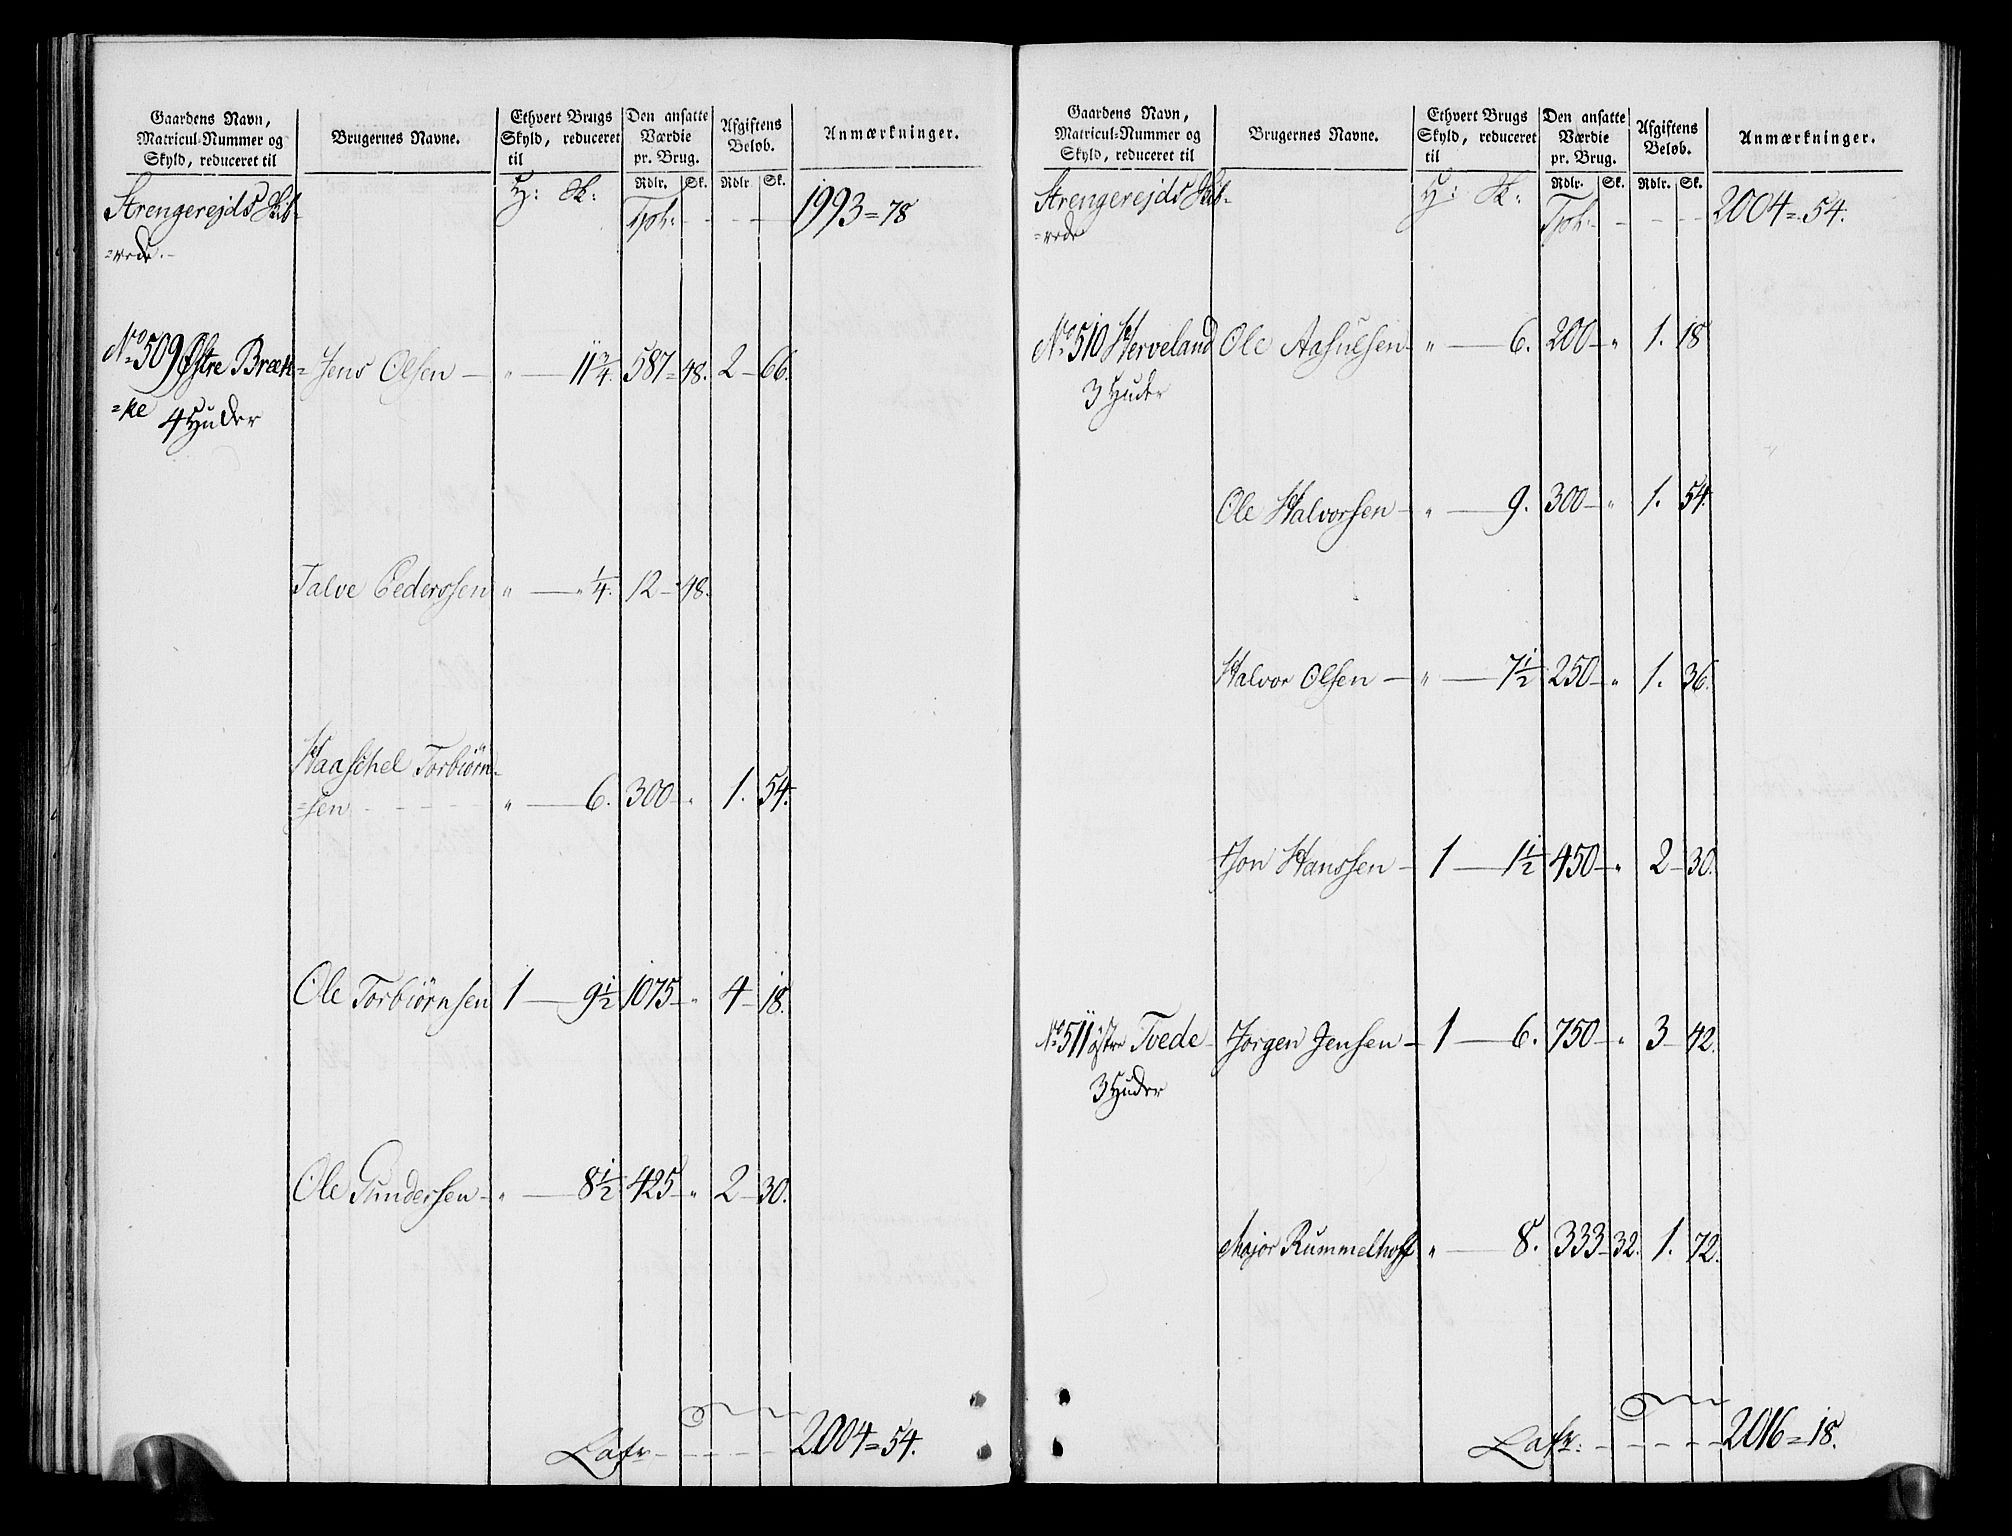 Gaardens Navn, Matricul-Nummer og Skyld, reduceret til
Brugernes Navne.
Ethvert Brugs Skyld, reduceret til
Den ansatte Værdie pr. Brug.
Afgiftens Beløb.
Anmærkninger.
Rdlr. Sk. Rdlr. Sk.
Strengerejds Skib-
=rede.
H: Sk:
Tpt: 1993=78
No 509 Østre Bræk= Jens Olsen — " — 11 3/4. 587=48. 2—66.
=ke 4 Huder
Talve Pederssen " — " 1/4. 12—48.
Haaschel Torbiörn-
=sen " — 6. 300—" 1. 54.
Ole Torbiörnsen 1 — 9 1/2 1075—" 4—18.
Ole Gundersen — " — 8 1/2 425—" 2—30.
Lafr 2004=54.
Gaardens Navn, Matricul-Nummer og Skyld, reduceret til
Brugernes Navne.
Ethvert Brugs Skyld, reduceret til
Den ansatte Værdie pr. Brug.
Afgiftens Beløb.
Anmærkninger.
Rdlr. Sk. Rdlr. Sk.
Strengerejds Skib-
=rede
H: Sk:
Tpt: 2004=54.
No 510 Herveland Ole Aasulsen — " — 6. 200—" 1. 18
3 Huder
Ole Halvorsen — " — 9. 300—" 1. 54.
Halvor Olsen — " — 7 1/2 250—" 1. 36.
Jon Hanssen — 1 — 1 1/2 450—" 2—30.
No 511 östre Tvede Jörgen Jensen — 1 — 6. 750—" 3—42.
3 Huder
Major Rummelhoff " — 8. 333—32. 1. 72.
Lafr: 2016=18.